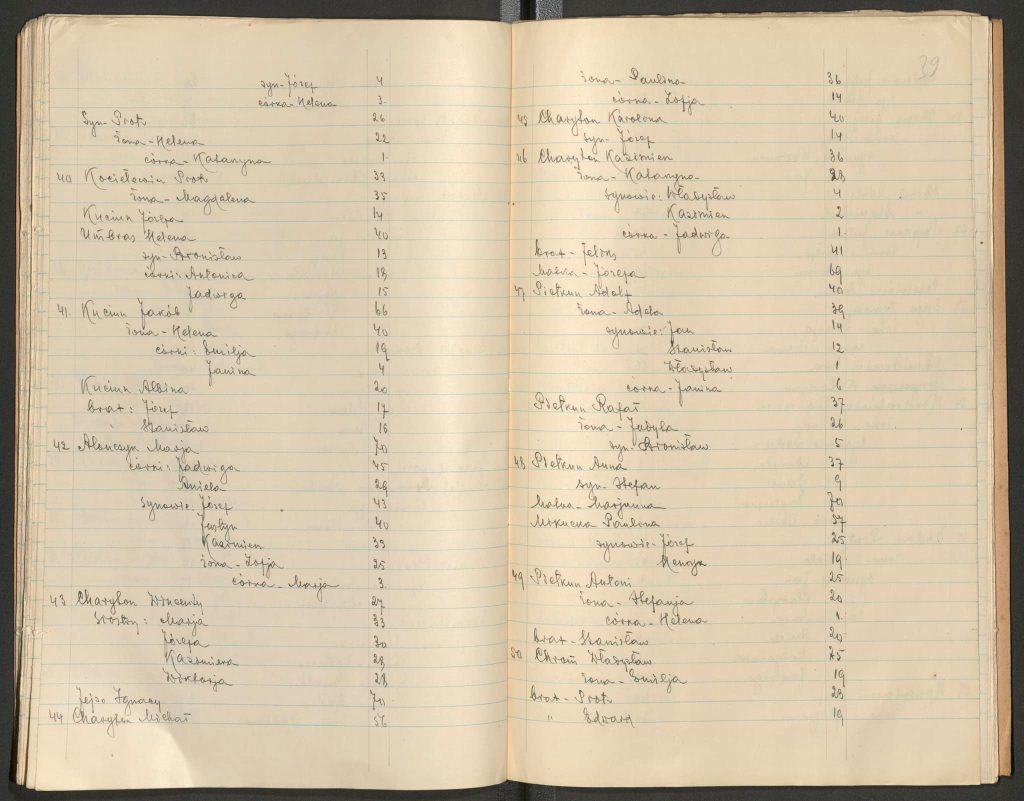 syn - Józef 4
córka - Helena 3
Syn - Prot 26
żona - Helena 22
córka - Katarzyna 1
40 Kociełowicz Prot 33
żona - Magdalena 35
Kuciun Józefa 14
Umbras Helena 40
syn - Bronisław 13
córki: Antonina 18
Jadwiga 15
41. Kuciun Jakób 66
żona - Helena 40
córki: Emilja 19
Janina 4
Kuciun Albina 20
brat: Józef 17
Stanisław 16
42 Marja 70
córki: Jadwiga 45
Aniela 29
synowie: Józef 43
Justyn 40
Kazimierz 33
żona - Zofja 25
córka - Marja 3
43 Charyton Wincenty 27
siostry: Marja 33
Józefa 30
Kazimiera 28
Wiktorja 28
Ignacy 70
44 Charyton Michał 56
39
żona - Paulina 36
córka - Zofja 14
45 Charyton Karolina 40
syn - Józef 14
46 Charyton Kazimierz 36
żona - Katarzyna
synowie: Władysław 4
Kazimierz 2
córka - Jadwiga 1
brat - Feliks 41
Matka - Józefa 69
47 Pietkun Adolf 40
żona - Adela 39
synowie: Jan 14
Stanisław 12
Władysław 1
córka - Janina 6
Pietkun Rafał 37
żona - 26
syn - Bronisław 5
48 Pietkun Anna 37
syn - Stefan 9
Matka - Marjanna 70
Paulina 57
synowie - Józef 25
Henryk 19
49 Pietkun Antoni 25
żona - Stefanja 20
córka - Helena 1
brat - Stanisław 20
50 Chrom Władysław 25
żona - Emilja 19
brat - Prot 23
" Edward 19